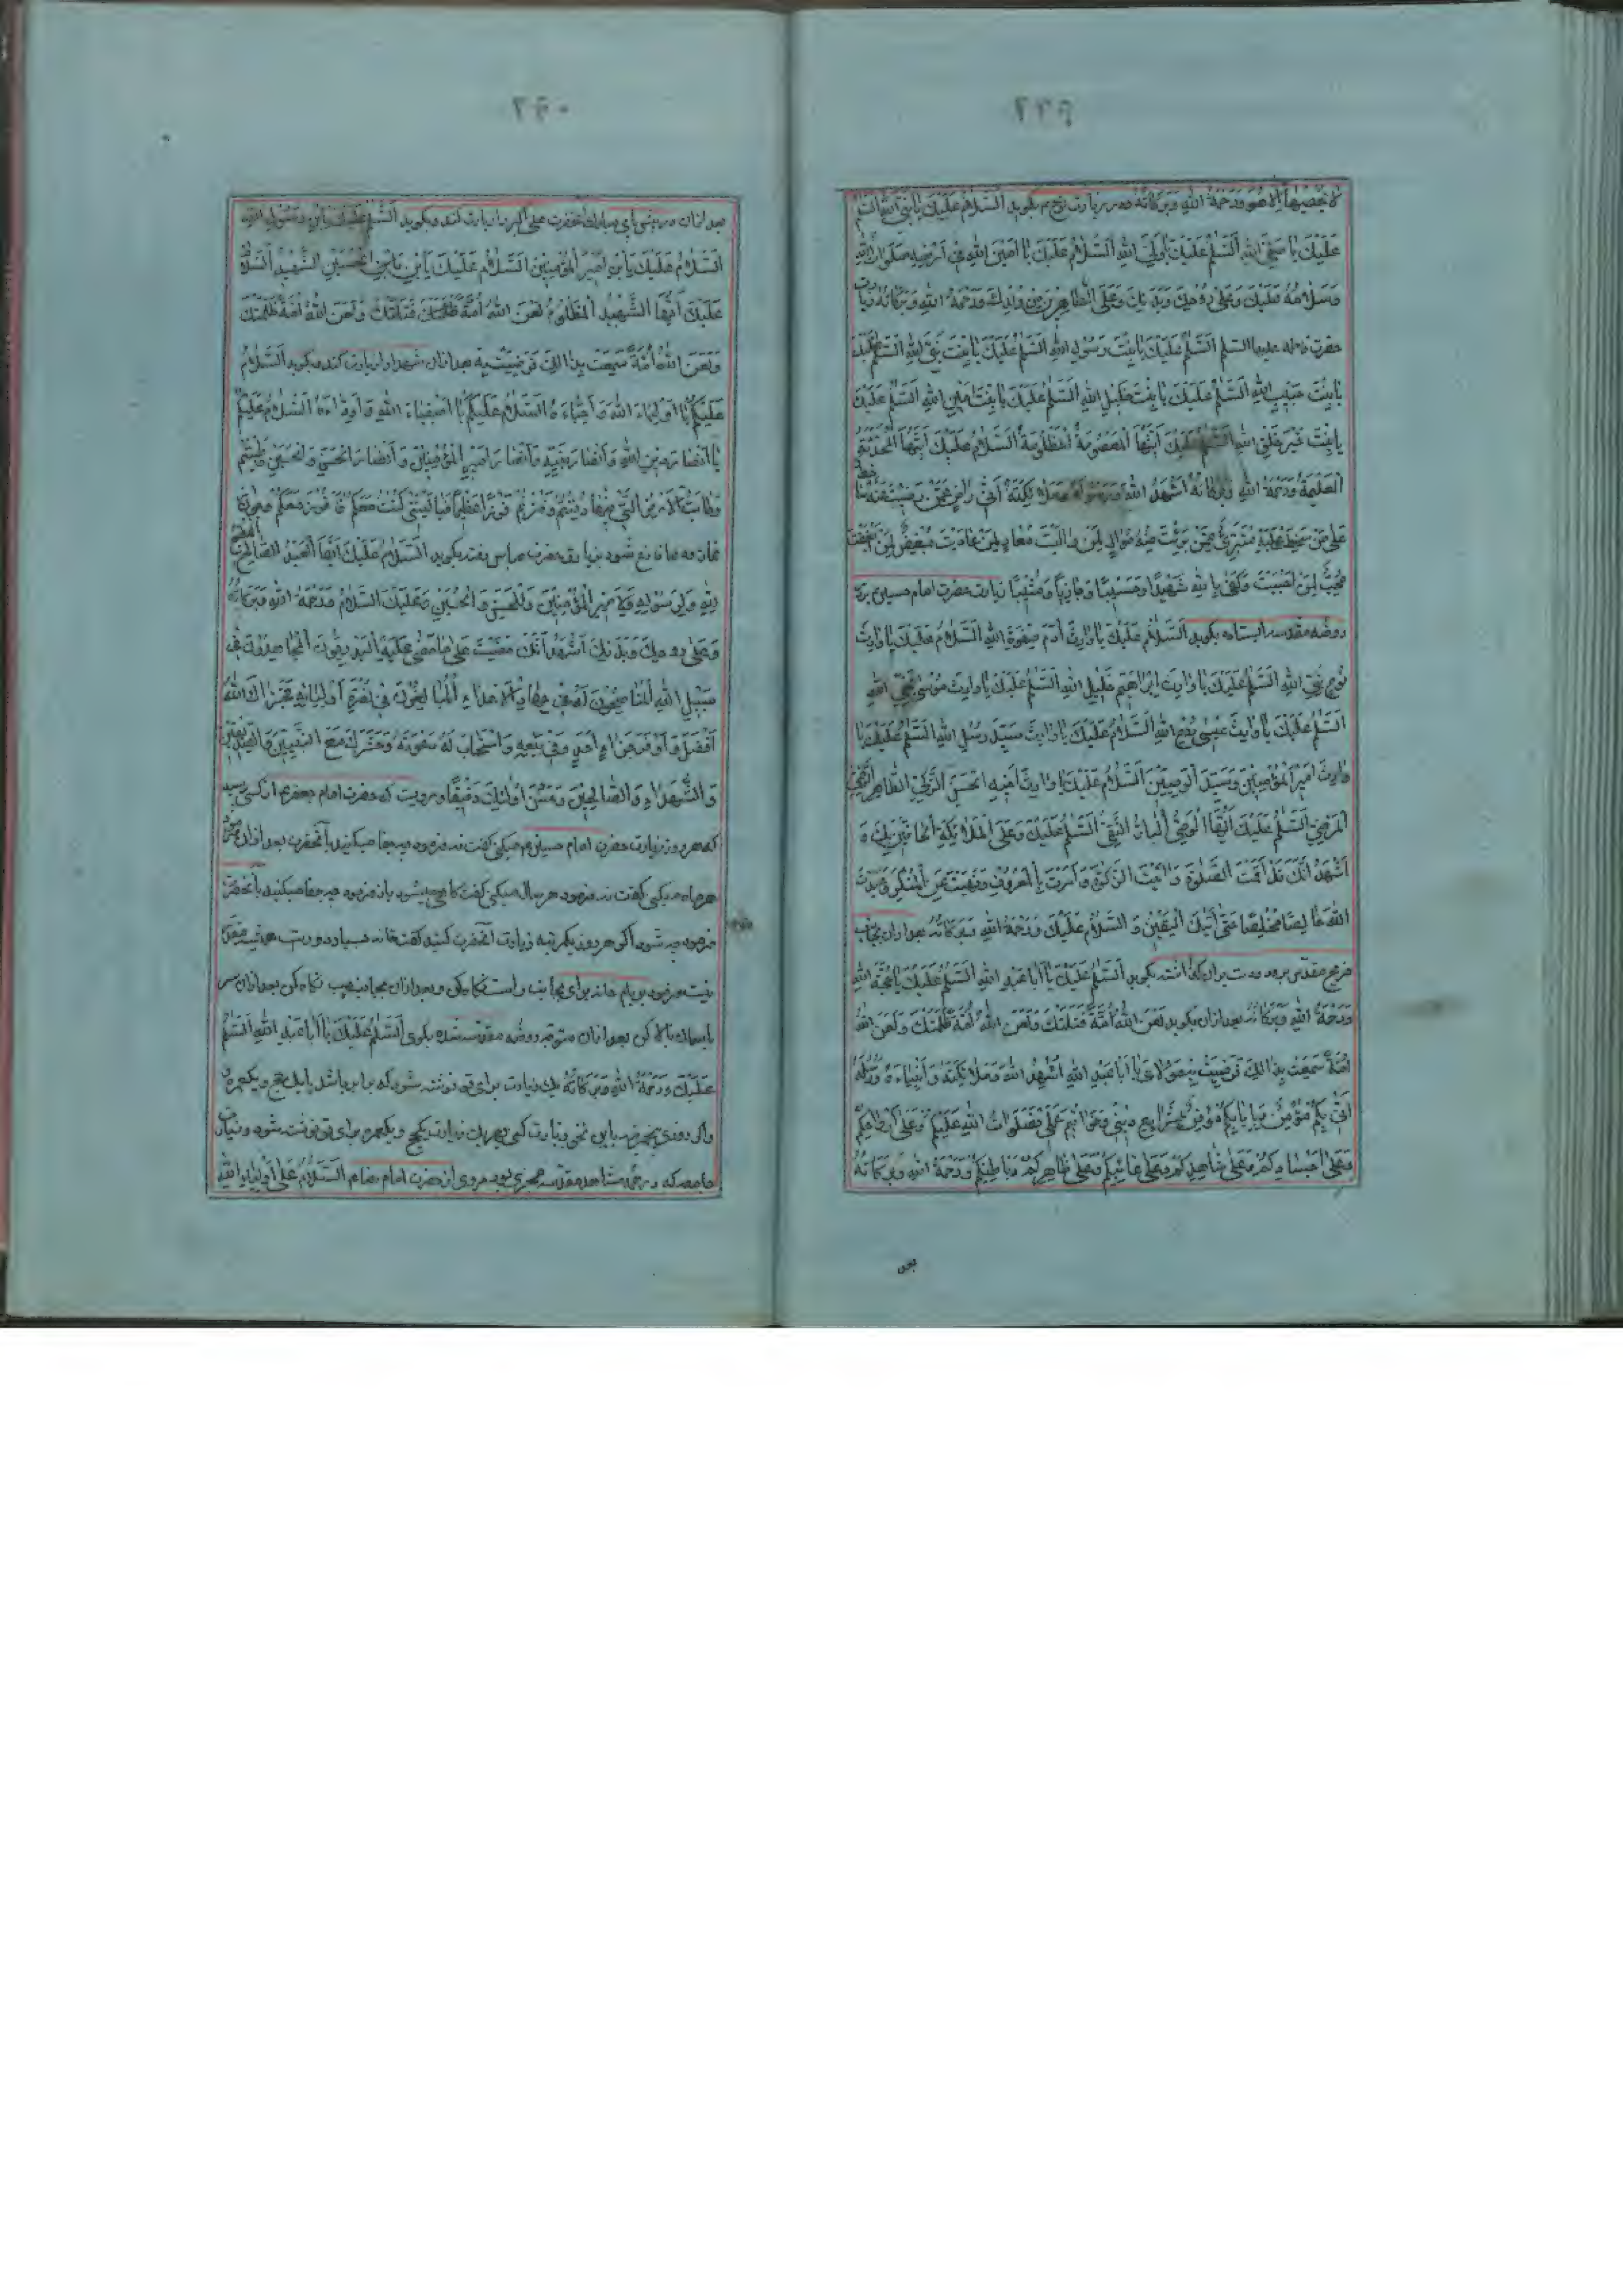 ۲۳۹
لَا یُحْصِیهَا اِلَّا هُوَ وَرَحْمَةُ اللهِ وَبَرَکَاتُهُ و در زیارت نوح ع بگوید اَلسَّلَامُ عَلَیْکَ یَا نَبِیَّ اللهِ اَلسَّلَمُ
عَلَیْکَ یَا صَفِیَّ اللهِ اَلسَّلَمُ عَلَیْکَ یَا وَلِیَّ اللهِ اَلسَّلَامُ عَلَیْکَ یَا اَمِینَ اللهِ فِی اَرْضِهِ صَلَوَاتُ اللهِ
وَسَلَامُهُ عَلَیْکَ وَعَلَی رُوحِکَ وَبَدَنِکَ وَعَلَی الطَّاهِرِینَ مِنْ وُلْدِکَ وَرَحْمَةُ اللهِ وَبَرَکَاتُهُ زیارت
حضرت فاطمه علیها السلم اَلسَّلَمُ عَلَیْکِ یَا بِنْتَ رَسُولِ اللهِ اَلسَّلَمُ عَلَیْکِ یَا بِنْتَ نَبِیِّ اللهِ اَلسَّلَمُ عَلَیْکِ
یَا بِنْتَ حَبِیبِ اللهِ اَلسَّلَمُ عَلَیْکِ یَا بِنْتَ خَلِیلِ اللهِ اَلسَّلَمُ عَلَیْکِ یَا بِنْتَ اَمِینِ اللهِ اَلسَّلَمُ عَلَیْکِ
یَا بِنْتَ خَیْرِ خَلْقِ اللهِ اَلسَّلَمُ عَلَیْکِ اَیَّتُهَا الْمَعْصُومَةُ الْمَظْلُومَةُ اَلسَّلَامُ عَلَیْکِ اَیَّتُهَا الْمُحَدَّثَةُ
الْعَلِیمَةُ وَرَحْمَةُ اللهِ وَبَرَکَاتُهُ اُشْهِدُ اللهَ وَرَسُولَهُ وَمَلَائِکَتَهُ اَنِّی رَاضٍ عَمَّنْ رَضِیتِ عَنْهُ سَاخِطٌ
عَلَی مَنْ سَخِطْتِ عَلَیْهِ مُتَبَرِّئٌ مِمَّنْ بَرِئْتِ مِنْهُ مُوَالٍ لِمَنْ وَالَیْتِ مُعَادٍ لِمَنْ عَادَیْتِ مُبْغِضٌ لِمَنْ اَبْغَضْتِ
مُحِبٌّ لِمَنْ اَحْبَبْتِ وَکَفَی بِاللهِ شَهِیدًا وَحَسِیبًا وَجَازِیًا وَمُثِیبًا زیارت حضرت امام حسین ع بر در
روضه مقدسه ایستاده بگوید اَلسَّلَامُ عَلَیْکَ یَا وَارِثَ آدَمَ صَفْوَةِ اللهِ اَلسَّلَامُ عَلَیْکَ یَا وَارِثَ
نُوحٍ نَبِیِّ اللهِ اَلسَّلَمُ عَلَیْکَ یَا وَارِثَ اِبْرَاهِیمَ خَلِیلِ اللهِ اَلسَّلَمُ عَلَیْکَ یَا وَارِثَ مُوسَی نَجِیِّ اللهِ
اَلسَّلَمُ عَلَیْکَ یَا وَارِثَ عِیسَی رُوحِ اللهِ اَلسَّلَامُ عَلَیْکَ یَا وَارِثَ سَیِّدِ رُسُلِ اللهِ اَلسَّلَمُ عَلَیْکَ یَا
وَارِثَ اَمِیرِ الْمُؤْمِنِینَ وَسَیِّدِ الْوَصِیِّینَ اَلسَّلَامُ عَلَیْکَ یَا وَارِثَ اَخِیهِ الْحَسَنِ الزَّکِیِّ الطَّاهِرِ الرَّضِیِّ
الْمَرْضِیِّ اَلسَّلَمُ عَلَیْکَ اَیُّهَا الْوَصِیُّ الْبَارُّ التَّقِیُّ اَلسَّلَمُ عَلَیْکَ وَعَلَی الْمَلَائِکَةِ الْحَافِّینَ بِکَ وَ
اَشْهَدُ اَنَّکَ قَدْ اَقَمْتَ الصَّلٰوةَ وَاٰتَیْتَ الزَّکٰوةَ وَاَمَرْتَ بِالْمَعْرُوفِ وَنَهَیْتَ عَنِ الْمُنْکَرِ وَعَبَدْتَ
اللهَ خَالِصًا مُخْلِصًا حَتَّی اَتَیکَ الْیَقِینُ وَ السَّلَامُ عَلَیْکَ وَرَحْمَةُ اللهِ وَبَرَکَاتُهُ بعد ازان بجانب
ضریح مقدس برود و دست بران گذاشته بگوید اَلسَّلَمُ عَلَیْکَ یَا اَبَا عَبْدِ اللهِ اَلسَّلَمُ عَلَیْکَ یَا حُجَّةَ اللهِ
وَرَحْمَةُ اللهِ وَبَرَکَاتُهُ بعد ازان بگوید لَعَنَ اللهُ اُمَّةً قَتَلَتْکَ وَلَعَنَ اللهُ اُمَّةً ظَلَمَتْکَ وَلَعَنَ اللهُ
اُمَّةً سَمِعَتْ بِذَالِکَ فَرَضِیَتْ بِهِ یَا مَوْلَایَ یَا اَبَا عَبْدِ اللهِ اُشْهِدُ اللهَ وَمَلَائِکَتَهُ وَاَنْبِیَاءَهُ وَرُسُلَهُ
اَنِّی بِکُمْ مُؤْمِنٌ وَبِاِیَابِکُمْ مُوقِنٌ بِشَرَایِعِ دِینِی وَخَوَاتِیمِ عَمَلِی فَصَلَوَاتُ اللهِ عَلَیْکُمْ وَعَلَی اَرْوَاحِکُمْ
وَعَلَی اَجْسَادِکُمْ وَعَلَی شَاهِدِکُمْ وَعَلَی غَائِبِکُمْ وَعَلَی ظَاهِرِکُمْ وَبَاطِنِکُمْ وَرَحْمَةُ اللهِ وَبَرَکَاتُهُ
بعد
۲۴۰
بعد ازان در پیش پای مبارک انحضرت علی اکبر را زیارت کند و بگوید اَلسَّلَمُ عَلَیْکَ یَابْنَ رَسُولِ اللهِ
اَلسَّلَامُ عَلَیْکَ یَابْنَ اَمِیرِ الْمُؤْمِنِینَ اَلسَّلَامُ عَلَیْکَ یَابْنَ الْحُسَیْنِ الشَّهِیدِ اَلسَّلَامُ
عَلَیْکَ اَیُّهَا الشَّهِیدُ الْمَظْلُومُ لَعَنَ اللهُ اُمَّةً قَتَلَتْکَ وَلَعَنَ اللهُ اُمَّةً ظَلَمَتْکَ
وَلَعَنَ اللهُ اُمَّةً سَمِعَتْ بِذَالِکَ فَرَضِیَتْ بِهِ بعد ازان شهدا را زیارت کند و بگوید اَلسَّلَامُ
عَلَیْکُمْ یَا اَوْلِیَاءَ اللهِ وَاَحِبَّاءَهُ اَلسَّلَامُ عَلَیْکُمْ یَا اَصْفِیَاءَ اللهِ وَاَوِدَّاءَهُ اَلسَّلَامُ عَلَیْکُمْ
یَا اَنْصَارَ دِینِ اللهِ وَاَنْصَارَ نَبِیِّهِ وَاَنْصَارَ اَمِیرِ الْمُؤْمِنِینَ وَاَنْصَارَ الْحَسَنِ وَالْحُسَیْنِ طِبْتُمْ
وَطَابَتِ الْاَرْضُ الَّتِی فِیهَا دُفِنْتُمْ وَفُزْتُمْ فَوْزًا عَظِیمًا فَیَا لَیْتَنِی کُنْتُ مَعَکُمْ فَاَفُوزَ مَعَکُمْ چون از
نماز و دعا فارغ شود بزیارت حضرت عباس رفته بگوید اَلسَّلَامُ عَلَیْکَ اَیُّهَا الْعَبْدُ الصَّالِحُ الْمُطِیعُ
لِلّٰهِ وَلِرَسُولِهِ وَلِاَمِیرِ الْمُؤْمِنِینَ وَالْحَسَنِ وَالْحُسَیْنِ وَعَلَیْکَ السَّلَامُ وَرَحْمَةُ اللهِ وَبَرَکَاتُهُ
وَعَلَی رُوحِکَ وَبَدَنِکَ اَشْهَدُ اَنَّکَ مَضَیْتَ عَلَی مَا مَضَی عَلَیْهِ الْبَدْرِیُّونَ الْمُجَاهِدُونَ فِی
سَبِیلِ اللهِ الْمُنَاصِحُونَ لَهُ فِی جِهَادِ الْاَعْدَاءِ الْمُبَالِغُونَ فِی نُصْرَةِ اَوْلِیَائِهِ فَجَزَاکَ اللهُ
اَفْضَلَ وَاَوْفَرَ جَزَاءِ اَحَدٍ وَفَی بِبَیْعِهِ وَاسْتَجَابَ لَهُ دَعْوَتَهُ وَحَشَرَکَ مَعَ النَّبِیِّینَ وَالصِّدِّیقِینَ
وَالشُّهَدَاءِ وَالصَّالِحِینَ وَحَسُنَ اُولٰئِکَ رَفِیقًا و مرویست که حضرت امام جعفر ع از کسی پرسید
که هر روز زیارت حضرت امام حسین ع میکنی گفت نه فرمود چه جفا میکنید بآنحضرت بعد ازان فرمود
هر ماه میکنی گفت نه فرمود هر سال میکنی گفت گاهی میشود باز فرمود چه جفا میکنید بآنحضرت
فرمود چه شود اگر هر روز یکمرتبه زیارت آنحضرت کنید گفت خانه
نیست فرمود بر بام خانه برای بجانب راست نگاه کن و بعد ازان بجانب چپ نگاه کن بعد ازان سر
باسمان بالا کن بعد ازان متوجه روضه مقدسه شده بگوی اَلسَّلَمُ عَلَیْکَ یَا اَبَا عَبْدِ اللهِ اَلسَّلَمُ
عَلَیْکَ وَرَحْمَةُ اللهِ وَبَرَکَاتُهُ یک زیارت برای تو نوشته شود که برابر باشد با یک حج و یکعمره
و اگر روزی پنجمرتبه باین نحو زیارت کنی بهر یک زیارت یکحج و یکعمره برای تو نوشته شود و زیارت
جامعه که در همه مشاهد مقدسه مجری بود مروی از حضرت امام رضا ع اَلسَّلَامُ عَلَی اَوْلِیَاءِ اللهِ